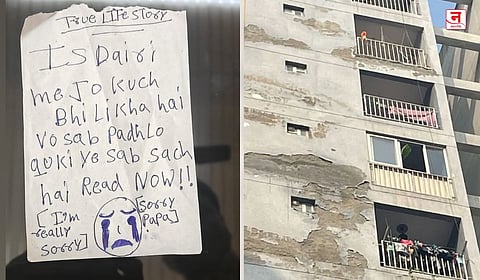 True LiFe Story
Is Dairi
me Jo kuch
Bhi Likha hai
Vo sab Padhlo
quki ye sab sach
hai Read Now!!
[I'm
really
sorry]
[sorry
Papa]